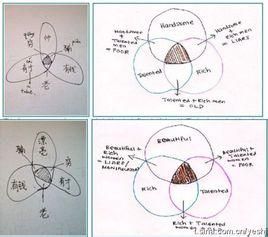 有钱
老
Handsome
Handsome
+
Talented
men
= POOR
Handsome
+
rich men
= LIARS
Talented
Rich
Talented + Rich men
= OLD
漂亮
有钱
有才
老
Beautiful
Beautiful +
Rich
women
= LIARS/
Beautiful +
Talented
women
= POOR
Rich
Talented
Rich + Talented
women